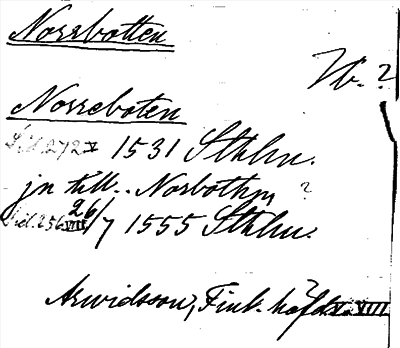 Norrbotten
Vb. ?
Norreboten
Sid. 272 V 1531 Sthlm.
jn till.. Norbothnn ?
Sid. 256 VIII 26/7 1555 Sthlm.
Arwidsson, Finl. häfd. V. VIII